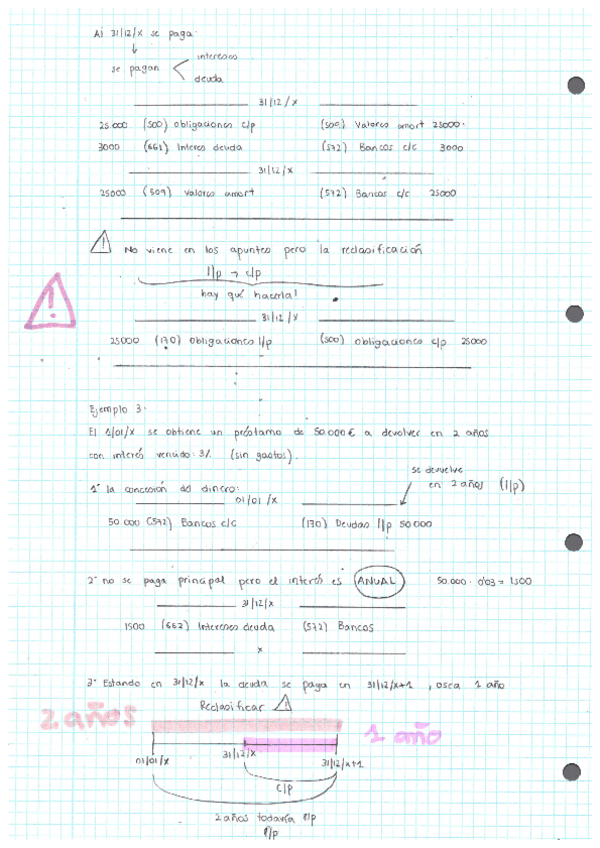 Al 31/12/x se paga:
se pagan
intereses
deuda
31/12/x
25.000 (500) obligaciones c/p (509) Valores amort 25000.
3000 (661) Interes deuda (572) Bancos c/c 3000
31/12/x
25000 (509) Valores amort (572) Bancos c/c 25000
! No viene en los apuntes pero la reclasificación
l/p → c/p
hay que hacerla!
!
31/12/x
25000 (170) obligaciones l/p (500) obligaciones c/p 25000
Ejemplo 3.
El 1/01/x se obtiene un préstamo de 50.000€ a devolver en 2 años
con interés vencido 3% (sin gastos).
se devuelve
en 2 años (l/p)
1º la concesión del dinero:
01/01/x
50.000 (572) Bancos c/c (170) Deudas l/p 50000
2º no se paga principal pero el interés es ANUAL 50.000 · 0'03 = 1500
31/12/x
1500 (662) Intereses deuda (572) Bancos
x
3º Estando en 31/12/x la deuda se paga en 31/12/x+1, osea 1 año
Reclasificar !
2 años
1 año
01/01/x 31/12/x 31/12/x+1
c/p
2 años todavía l/p
l/p